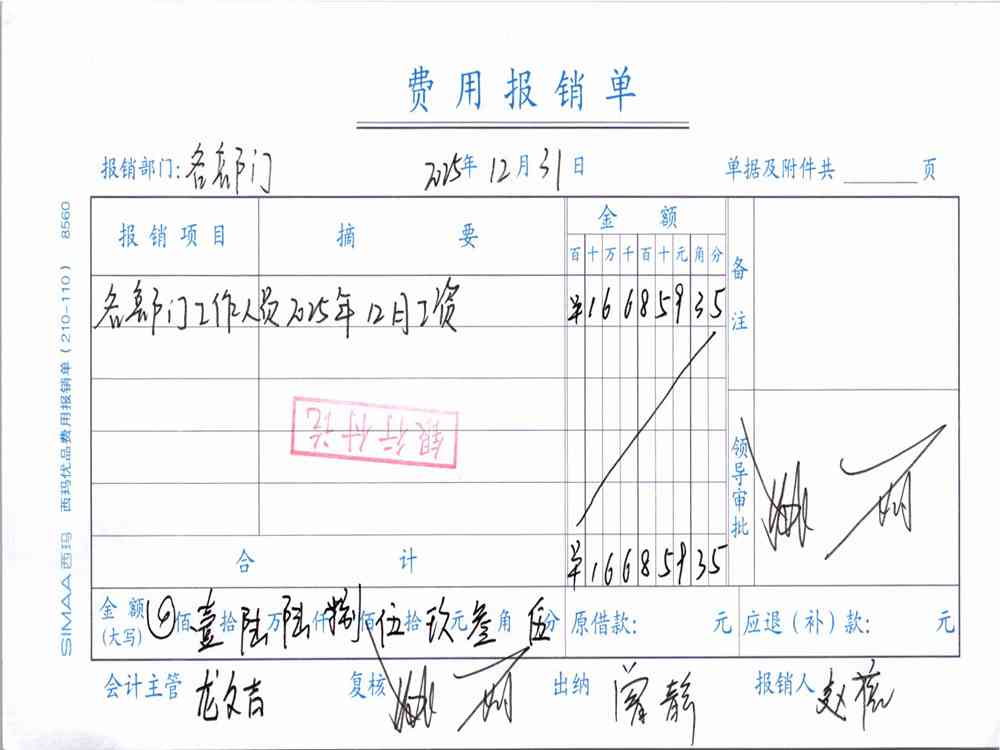 费用报销单
报销部门: 各部门 2025年 12月 31日 单据及附件共 页
报销项目 摘要 金额 备注
百 十 万 千 百 十 元 角 分
各部门工作人员2025年12月工资 ¥16685935
银行付讫
领导审批
合计 ¥16685935
金额(大写) 佰壹拾陆万陆仟捌佰伍拾玖元叁角伍分 原借款: 元 应退(补)款: 元
会计主管 龙文吉 复核 出纳 静 报销人 赵
SIMAA 西玛 西玛优品费用报销单(210-110) 8560